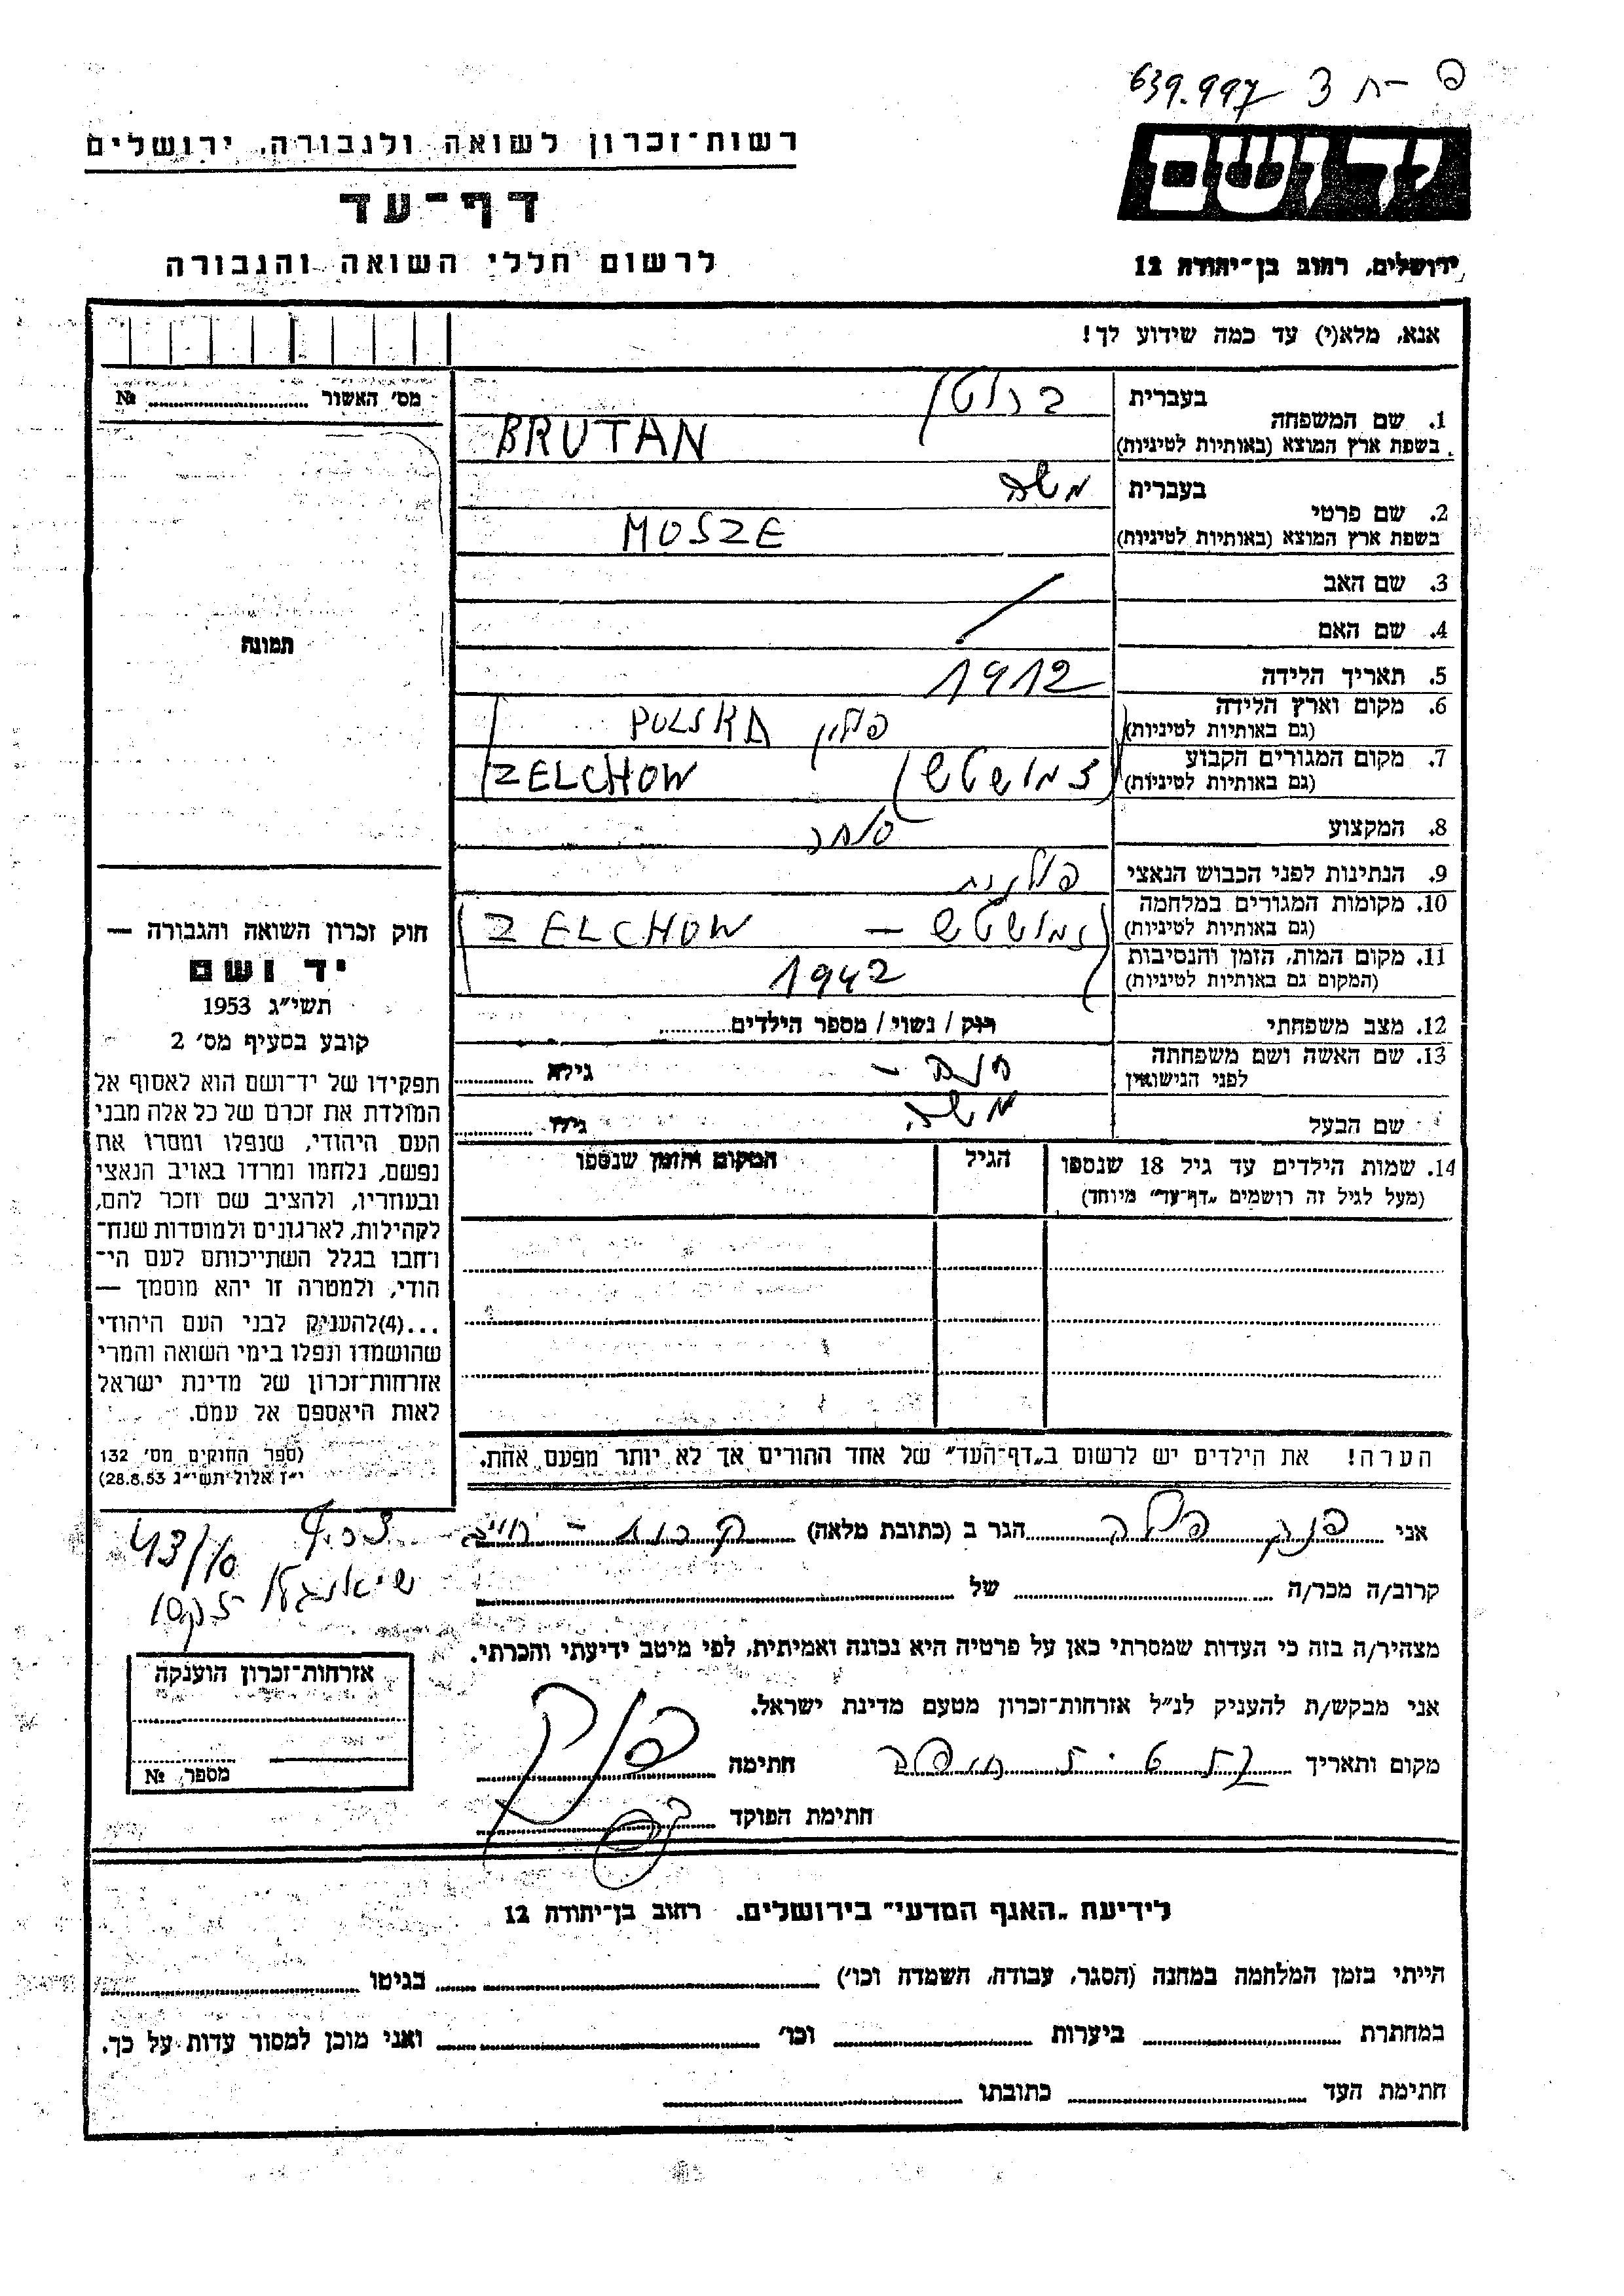 639.997
רשות־זכרון לשואה ולגבורה, ירושלים
ידושם
דף־עד
לרשום חללי השואה והגבורה
ירושלים, רחוב בן־יהודה 12
אנא, מלא(י) עד כמה שידוע לך!
מס׳ האשור № ........
1. שם המשפחה
בעברית
ברוטן
בשפת ארץ המוצא (באותיות לטיניות)
BRUTAN
2. שם פרטי
בעברית
משה
בשפת ארץ המוצא (באותיות לטיניות)
MOSZE
3. שם האב
4. שם האם
תמונה
5. תאריך הלידה 1912
6. מקום וארץ הלידה
(גם באותיות לטיניות)
פולין POLSKA
7. מקום המגורים הקבוע
(גם באותיות לטיניות)
ZELCHOW
8. המקצוע סוחר
9. הנתינות לפני הכבוש הנאצי פולנית
10. מקומות המגורים במלחמה
(גם באותיות לטיניות)
— ZELCHOW
11. מקום המות, הזמן והנסיבות
(המקום גם באותיות לטיניות)
1942
12. מצב משפחתי רווק / נשוי / מספר הילדים........
13. שם האשה ושם משפחתה
לפני הנישואין
חנה – גילה ........
שם הבעל משה גילו ........
14. שמות הילדים עד גיל 18 שנספו
(מעל לגיל זה רושמים „דף־עד” מיוחד)
הגיל
המקום והזמן שנספו
חוק זכרון השואה והגבורה —
יד ושם
תשי״ג 1953
קובע בסעיף מס׳ 2
תפקידו של יד־ושם הוא לאסוף אל
המולדת את זכרם של כל אלה מבני
העם היהודי, שנפלו ומסרו את
נפשם, נלחמו ומרדו באויב הנאצי
ובעוזריו, ולהציב שם וזכר להם,
לקהילות, לארגונים ולמוסדות שנח־
רחבו בגלל השתייכותם לעם הי־
הודי, ולמטרה זו יהא מוסמך —
...(4)להעניק לבני העם היהודי
שהושמדו ונפלו בימי השואה והמרי
אזרחות־זכרון של מדינת ישראל
לאות היאספם אל עמם.
(ספר החוקים מס׳ 132
י״ז אלול תשי״ג 28.8.53)
הערה! את הילדים יש לרשום ב„דף־העד” של אחד ההורים אך לא יותר מפעם אחת.
אני ........ הגר ב (כתובת מלאה) ........
43/10
קרוב/ה מכר/ה ........ של ........
מצהיר/ה בזה כי העדות שמסרתי כאן על פרטיה היא נכונה ואמיתית, לפי מיטב ידיעתי והכרתי.
אני מבקש/ת להעניק לנ״ל אזרחות־זכרון מטעם מדינת ישראל.
מקום ותאריך ........ חתימה ........
חתימת הפוקד ........
אזרחות־זכרון הוענקה
מספר, №
לידיעת „האגף המדעי” בירושלים. רחוב בן־יהודה 12
הייתי בזמן המלחמה במחנה (הסגר, עבודה, השמדה וכו׳) ........ בגיטו ........
במחתרת ........ ביערות ........ וכו׳ ........ ואני מוכן למסור עדות על כך.
חתימת העד ........ כתובתו ........